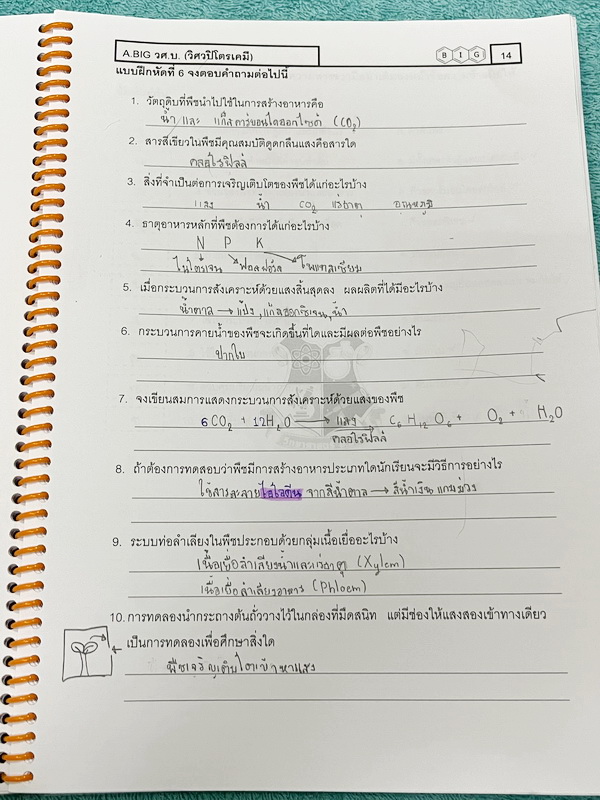 A.BIG วศ.บ. (วิศวปิโตรเคมี)
B I G
14
แบบฝึกหัดที่ 6 จงตอบคำถามต่อไปนี้
1. วัตถุดิบที่พืชนำไปใช้ในการสร้างอาหารคือ
น้ำ และ แก๊สคาร์บอนไดออกไซด์ (CO2)
2. สารสีเขียวในพืชมีคุณสมบัติดูดกลืนแสงคือสารใด
คลอโรฟิลล์
3. สิ่งที่จำเป็นต่อการเจริญเติบโตของพืชได้แก่อะไรบ้าง
แสง น้ำ CO2 แร่ธาตุ อุณหภูมิ
4. ธาตุอาหารหลักที่พืชต้องการได้แก่อะไรบ้าง
N P K
ไนโตรเจน ฟอสฟอรัส โพแทสเซียม
5. เมื่อกระบวนการสังเคราะห์ด้วยแสงสิ้นสุดลง ผลผลิตที่ได้มีอะไรบ้าง
น้ำตาล → แป้ง, แก๊สออกซิเจน, น้ำ
6. กระบวนการคายน้ำของพืชจะเกิดขึ้นที่ใดและมีผลต่อพืชอย่างไร
ปากใบ
7. จงเขียนสมการแสดงกระบวนการสังเคราะห์ด้วยแสงของพืช
6CO2 + 12H2O แสง C6H12O6 + O2 + H2O
คลอโรฟิลล์
8. ถ้าต้องการทดสอบว่าพืชมีการสร้างอาหารประเภทใดนักเรียนจะมีวิธีการอย่างไร
ใช้สารละลายไอโอดีน จากสีน้ำตาล → สีน้ำเงินแกมม่วง
9. ระบบท่อลำเลียงในพืชประกอบด้วยกลุ่มเนื้อเยื่ออะไรบ้าง
เนื้อเยื่อลำเลียงน้ำและแร่ธาตุ (Xylem)
เนื้อเยื่อลำเลียงอาหาร (Phloem)
10. การทดลองนำกระถางต้นถั่ววางไว้ในกล่องที่มืดสนิท แต่มีช่องให้แสงสองเข้าทางเดียว
เป็นการทดลองเพื่อศึกษาสิ่งใด
พืชเจริญเติบโตเข้าหาแสง